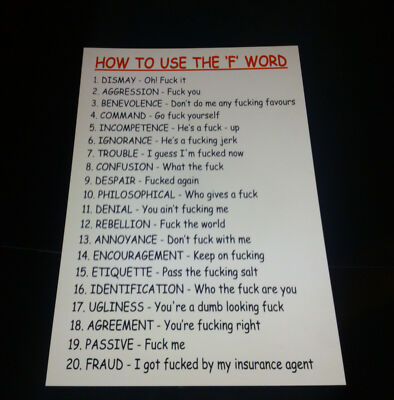 HOW TO USE THE 'F' WORD
1. DISMAY - Oh! Fuck it
2. AGGRESSION - Fuck you
3. BENEVOLENCE - Don't do me any fucking favours
4. COMMAND - Go fuck yourself
5. INCOMPETENCE - He's a fuck - up
6. IGNORANCE - He's a fucking jerk
7. TROUBLE - I guess I'm fucked now
8. CONFUSION - What the fuck
9. DESPAIR - Fucked again
10. PHILOSOPHICAL - Who gives a fuck
11. DENIAL - You ain't fucking me
12. REBELLION - Fuck the world
13. ANNOYANCE - Don't fuck with me
14. ENCOURAGEMENT - Keep on fucking
15. ETIQUETTE - Pass the fucking salt
16. IDENTIFICATION - Who the fuck are you
17. UGLINESS - You're a dumb looking fuck
18. AGREEMENT - You're fucking right
19. PASSIVE - Fuck me
20. FRAUD - I got fucked by my insurance agent